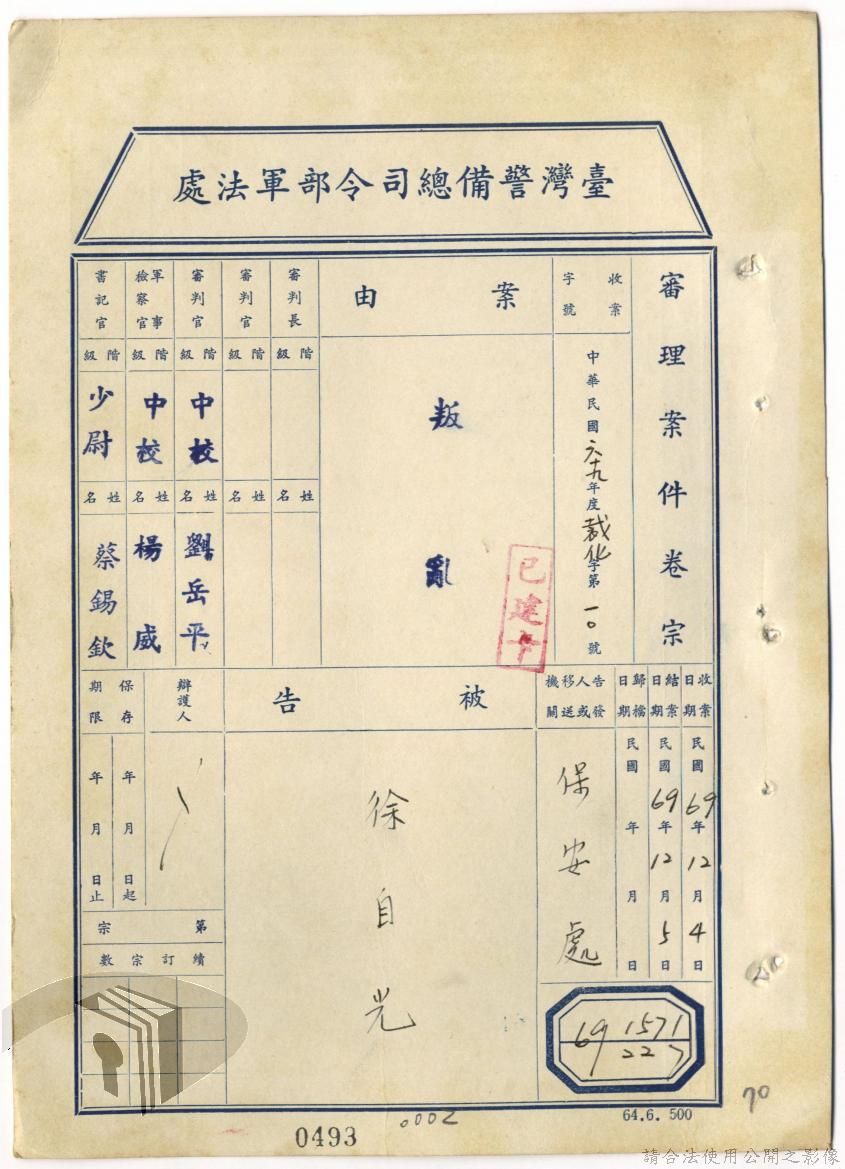 臺灣警備總司令部軍法處
審理案件卷宗
收案字號
中華民國六十九年度裁化字第一〇號
案由
叛亂
審判長
階級
姓名
審判官
階級
姓名
審判官
階級
中校
姓名
劉岳平
軍事檢察官
階級
中校
姓名
楊威
書記官
階級
少尉
姓名
蔡錫欽
已建卡
收案日期
民國69年12月4日
結案日期
民國69年12月5日
歸檔日期
民國 年 月 日
告發人或移送機關
保安處
被告
徐自光
辯護人
保存期限
年 月 日起
年 月 日止
第 宗
續訂宗數
69 1571
227
64.6. 500
70
0002
0493
請合法使用公開之影像